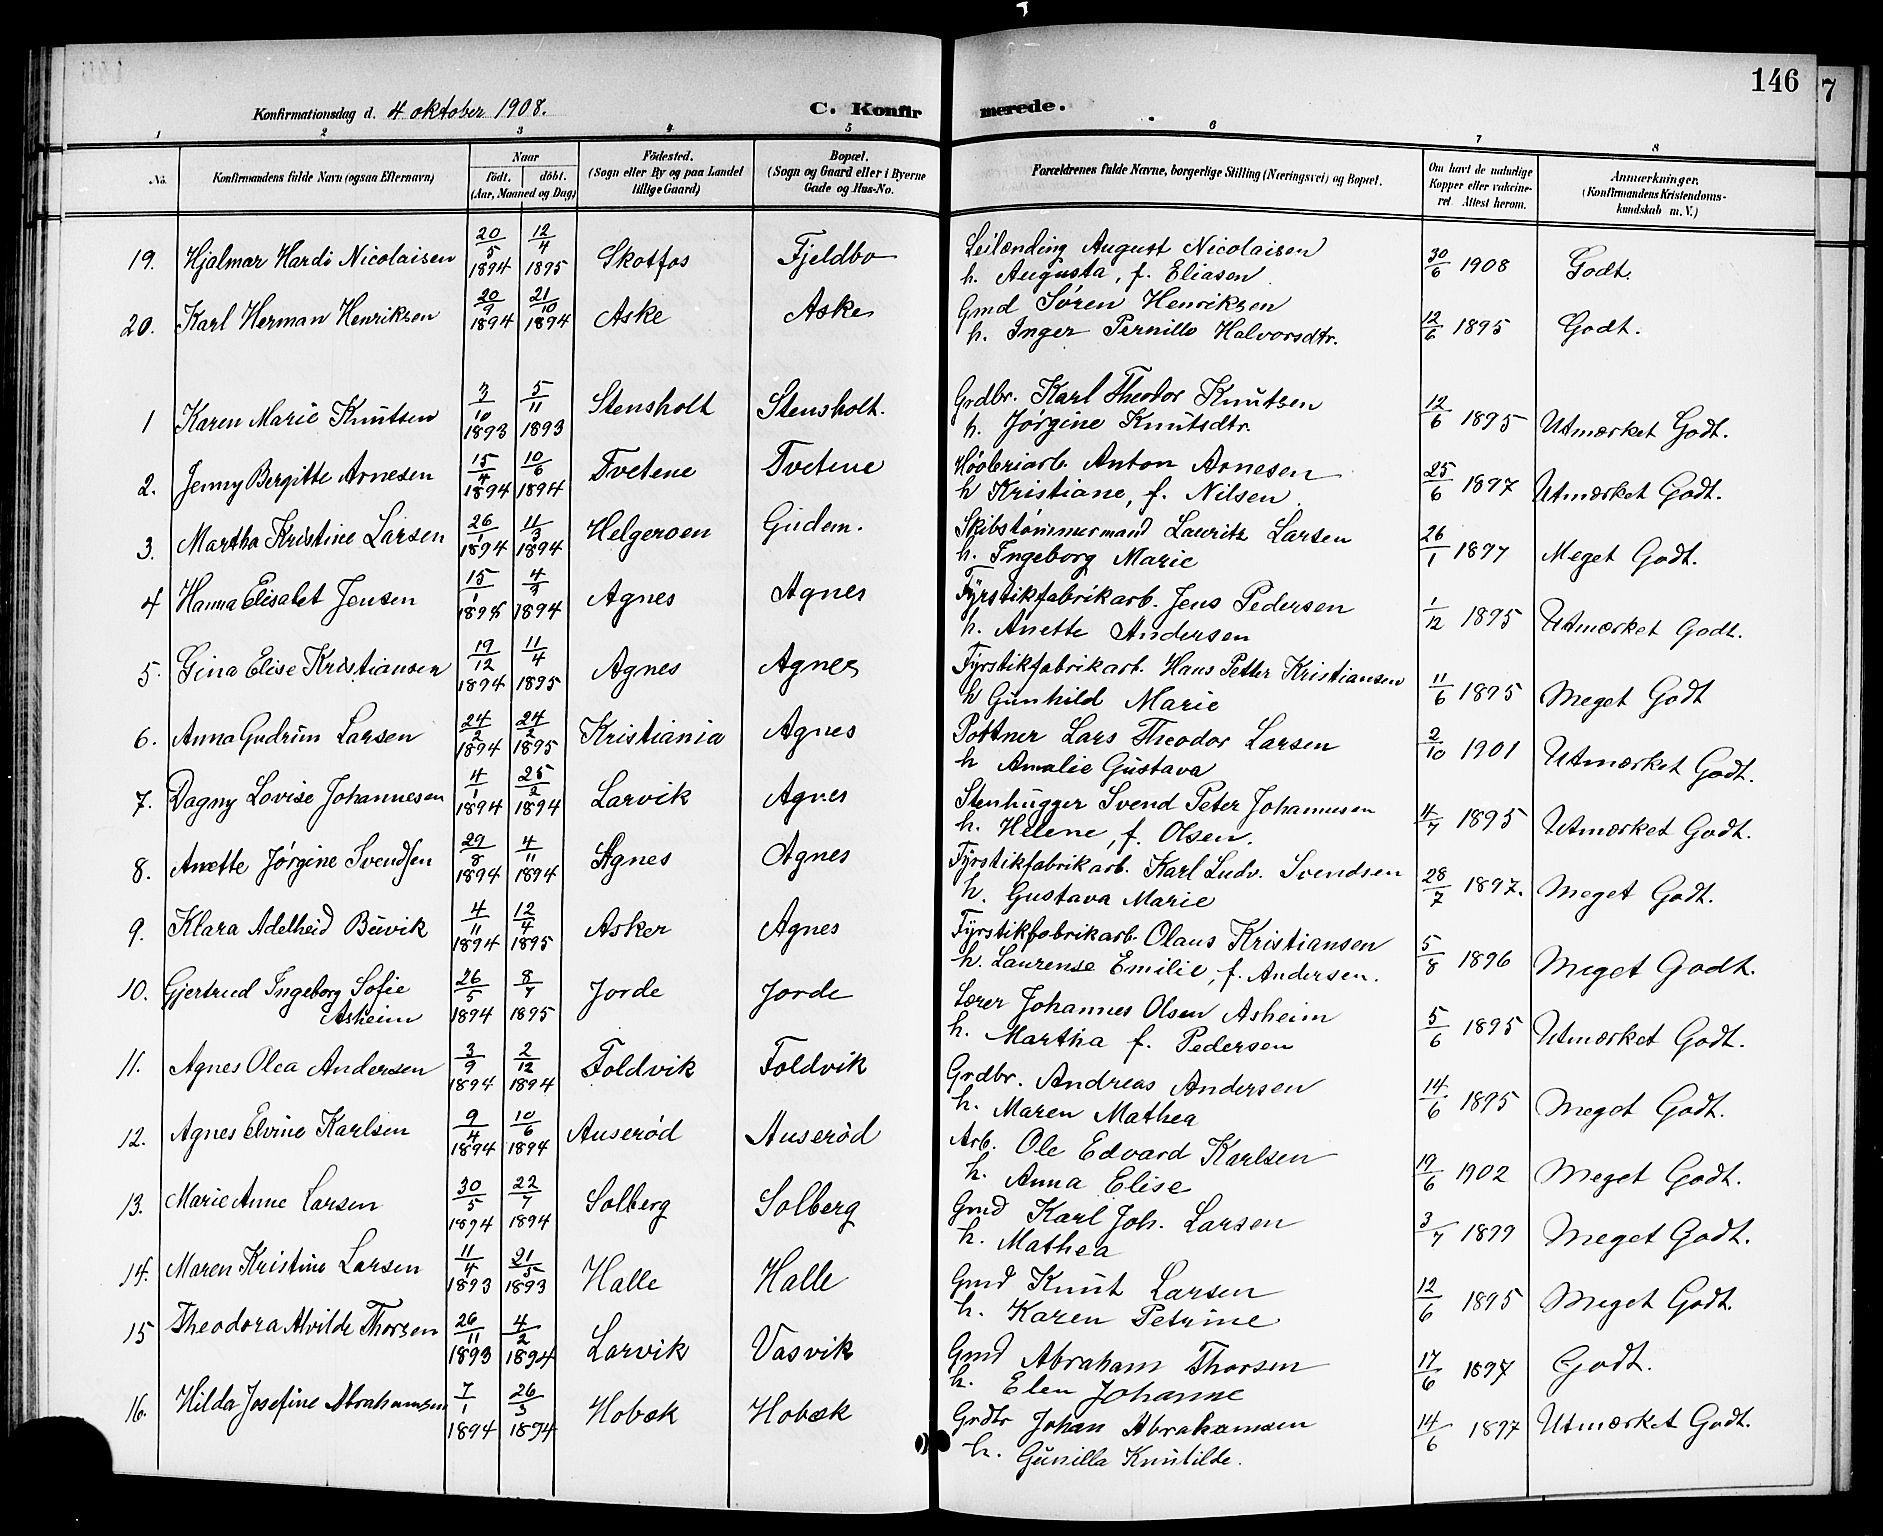 146
7
Konfirmationsdag d. 4 oktober 1908.
C. Konfirmerede.
1 2 3 4 5 6 7 8
No.
Konfirmandens fulde Navn (ogsaa Efternavn)
Naar
født. døbt.
(Aar, Maaned og Dag)
Fødested.
(Sogn eller By og paa Landet
tillige Gaard)
Bopæl.
(Sogn og Gaard eller i Byerne
Gade og Hus-No.
Forældrenes fulde Navne, borgerlige Stilling (Næringsvei) og Bopæl.
Om havt de naturlige
Kopper eller vakcine-
ret. Attest herom.
Anmærkninger.
(Konfirmandens Kristendoms-
kundskab m. V.)
19. Hjalmar Hardi Nicolaisen 20/5 1894 12/4 1895 Skotfos Fjeldbo Leilænding August Nicolaisen 30/6 1908 Godt.
h. Augusta, f. Eliasen
20. Karl Herman Henriksen 20/9 1894 21/10 1894 Aske Aske Gmd Søren Henriksen 12/6 1895 Godt.
h. Inger Pernille Halvorsdtr.
1 Karen Marie Knutsen 3/10 1893 5/11 1893 Stensholt Stensholt. Grdbr. Karl Theodor Knutsen 12/6 1895 Utmærket Godt.
h. Jørgine Knutsdtr.
2. Jenny Bergitte Arnesen 15/4 1894 10/6 1894 Tvetene Tvetene Høvleriarb. Anton Arnesen 25/6 1897 Utmærket Godt.
h Kristiane, f. Nilsen
3. Martha Kristine Larsen 26/1 1894 11/3 1894 Helgeroen Gudem. Skibstømmermand Lauritz Larsen 26/1 1897 Meget Godt.
h. Ingeborg Marie
4 Hanna Elisabet Jensen 15/1 1894 4/3 1894 Agnes Agnes Fyrstikfabrikarb. Jens Pedersen 1/12 1895 Utmærket Godt.
h. Anette Andersen
5. Gina Elise Kristiansen 19/12 1894 11/4 1895 Agnes Agnes Fyrstikfabrikarb. Hans Petter Kristiansen 11/6 1895 Meget Godt
h Gunhild Marie
6. Anna Gudrun Larsen 24/2 1894 24/2 1895 Kristiania Agnes Pottner Lars Theodor Larsen 2/10 1901 Utmærket Godt.
h Amalie Gustava
7. Dagny Lovise Johannesen 4/1 1894 25/2 1894 Larvik Agnes Stenhugger Svend Peter Johannesen 4/7 1895 Utmærket Godt.
h. Helene, f. Olsen.
8. Anette Jørgine Svendsen 29/8 1894 4/11 1894 Agnes Agnes Fyrstikfabrikarb. Karl Ludv. Svendsen 28/7 1897. Meget Godt.
h. Gustava Marie
9. Klara Adelheid Buvik 4/11 1894 12/4 1895 Asker Agnes Fyrstikfabrikarb. Olaus Kristiansen 5/8 1896 Meget Godt.
h. Laurense Emilie, f. Andersen.
10. Gjertrud Ingeborg Sofie 26/5 1894 8/7 1895 Jorde Jorde Lærer Johannes Olsen Asheim 5/6 1895 Utmærket Godt.
Asheim h. Martha f. Pedersen
11. Agnes Olea Andersen 3/9 1894 2/12 1894 Foldvik Foldvik Grdbr. Andreas Andersen 14/6 1895 Meget Godt.
h. Maren Mathea
12. Agnes Elvine Karlsen 9/4 1894 10/6 1894 Auserød Auserød Arb. Ole Edvard Karlsen 19/6 1902 Meget Godt.
h. Anna Elise
13. Marie Anne Larsen 30/5 1894 22/7 1894 Solberg Solberg Gmd Karl Joh. Larsen 3/7 1899 Meget Godt.
h. Mathea
14. Maren Kristine Larsen 11/4 1893 21/5 1893 Halle Halle Gmd Knut Larsen 12/6 1895 Meget Godt.
h. Karen Petrine
15 Theodora Alvilde Thorsen 26/11 1893 4/2 1894 Larvik Vasvik Gmd Abraham Thorsen 17/6 1897 Godt.
h. Elen Johanne
16. Hilda Josefine Abrahamsen 7/1 1894 26/3 1894 Hobæk Hobæk Grdbr Johan Abrahamsen 14/6 1897 Utmærket Godt.
h. Gunilla Knutilde.